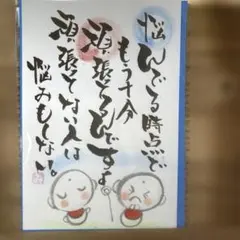 悩んでる時点で
もう十分
頑張ってるんですよ
頑張ってない人は
悩みもしない。